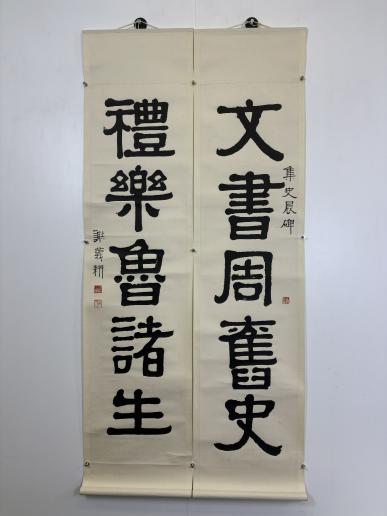 文書周舊史
集史晨碑
禮樂魯諸生
謝義耕